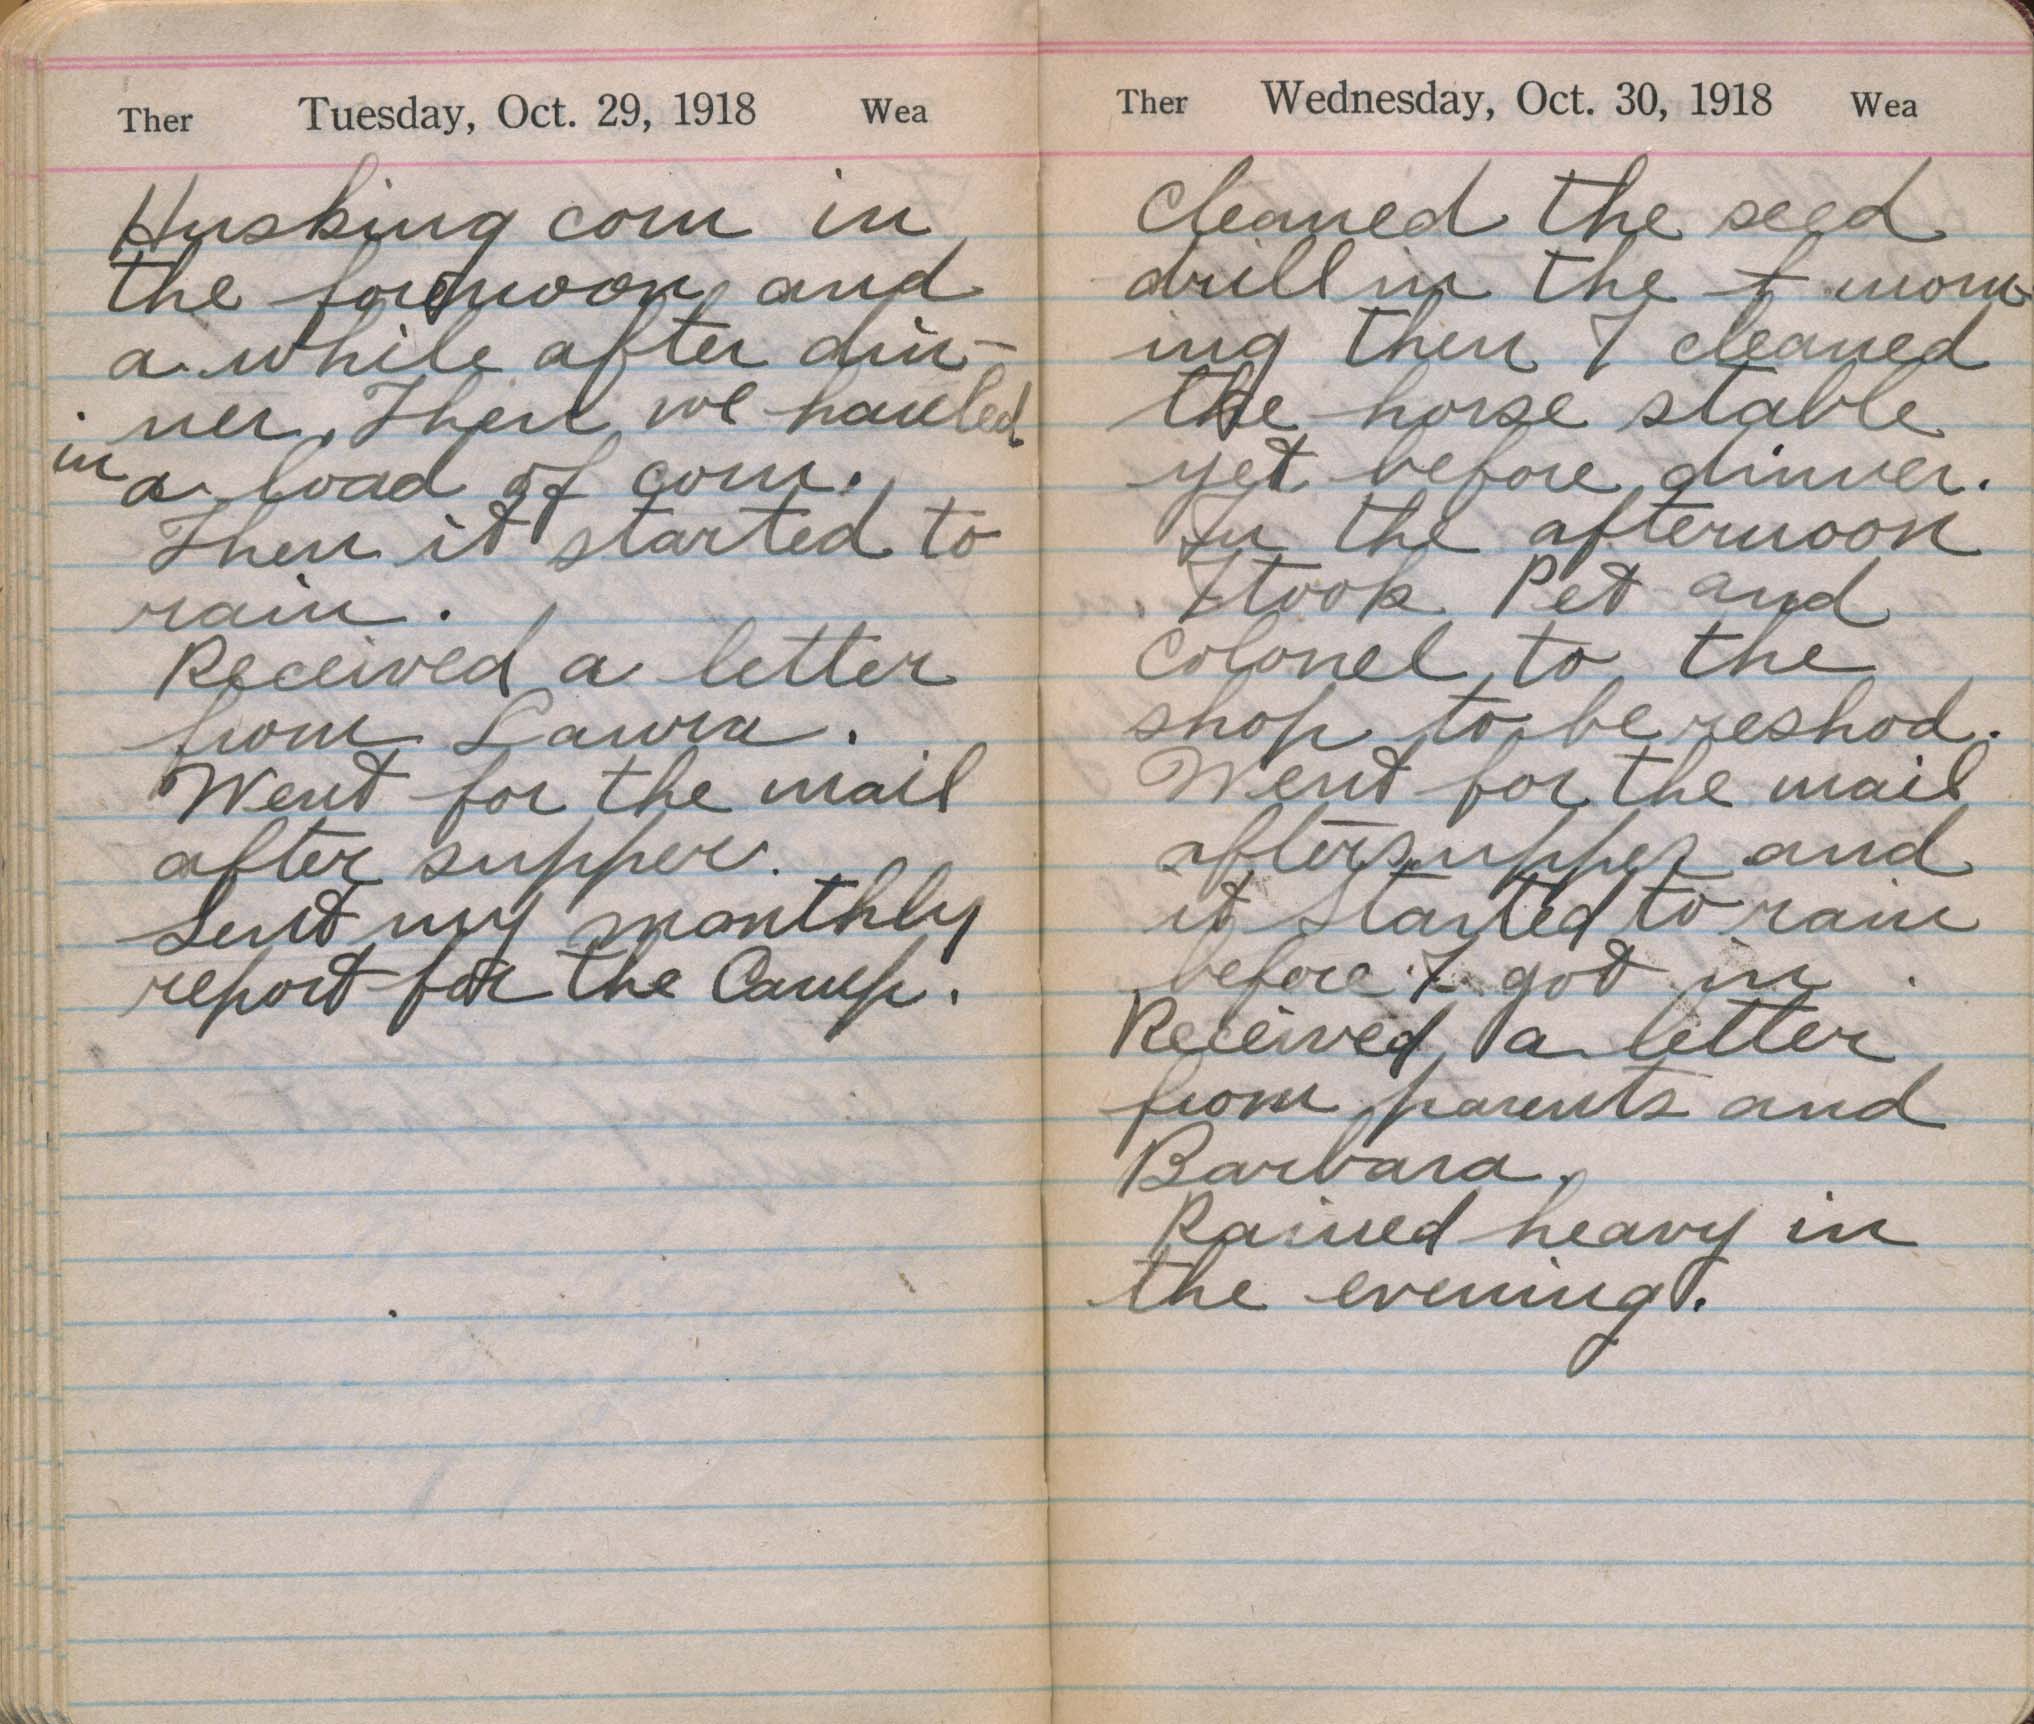 Ther Tuesday, Oct. 29, 1918 Wea
Husking corn in
the forenoon and
a while after din-
ner. Then we hauled
in a load of corn.
Then it started to
rain.
Received a letter
from Laura.
Went for the mail
after supper.
Sent my monthly
report for the Camp.
Ther Wednesday, Oct. 30, 1918 Wea
Cleaned the seed
drill in the f morn-
ing then I cleaned
the horse stable
yet before dinner.
In the afternoon
I took Pet and
Colonel to the
shop to be reshod.
Went for the mail
after supper and
it started to rain
before I got in.
Received a letter
from parents and
Barbara.
Rained heavy in
the evening.